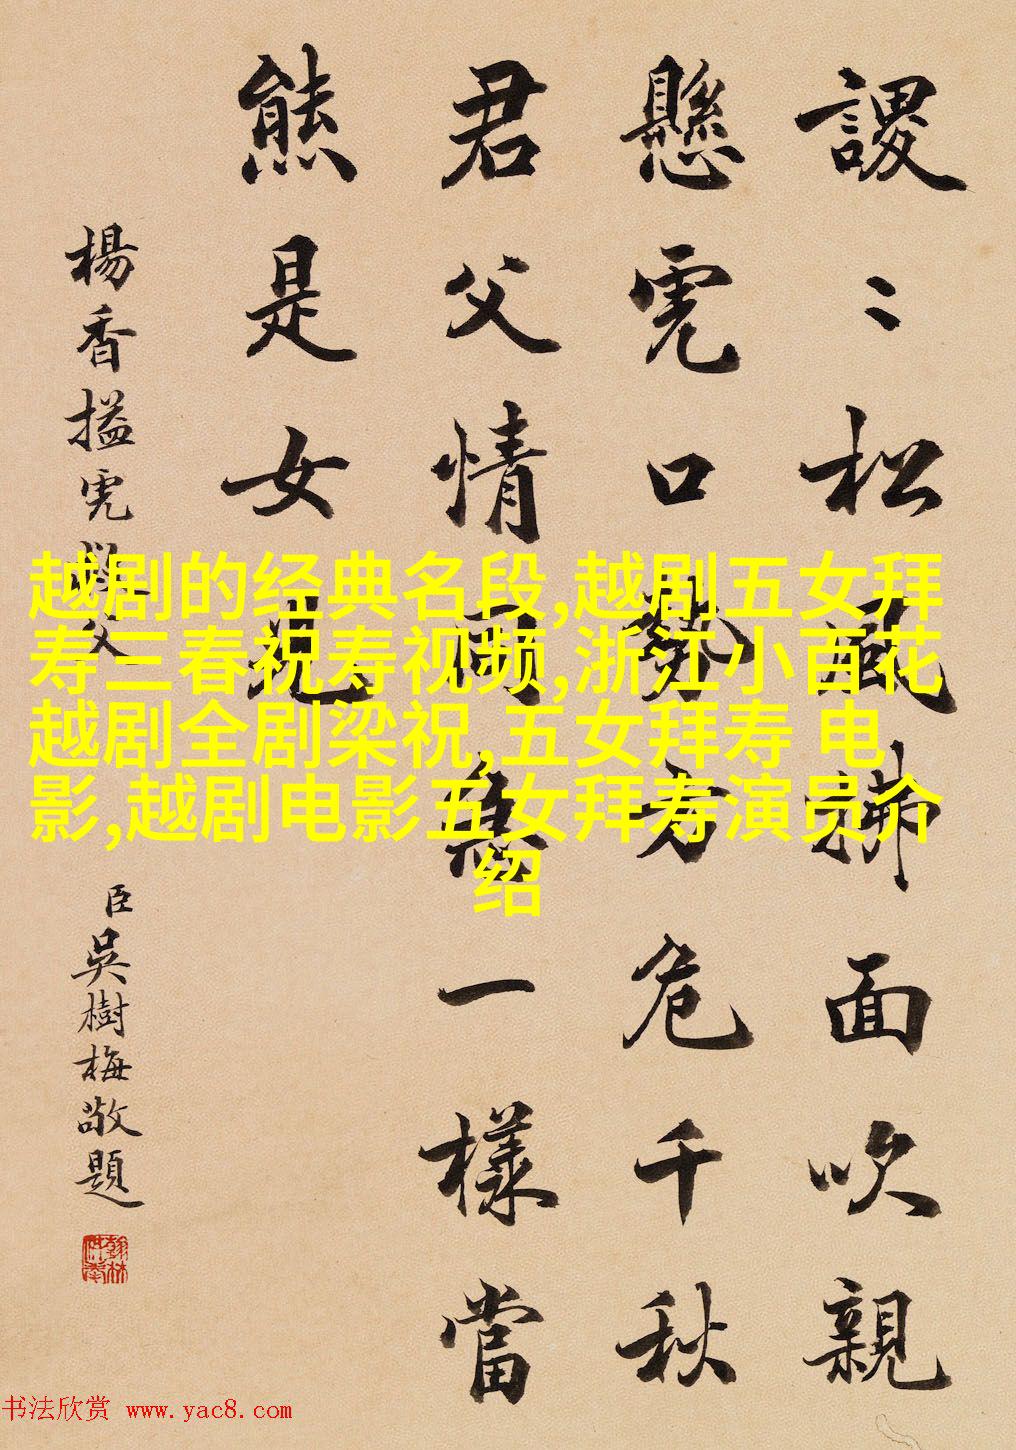 謖〻松風拂面吹親
懸虎口勢方危千秋
君父情同急一樣當
熊是女兒
楊香搤虎救父
臣吳樹梅敬題
翰林供奉
越剧的经典名段,越剧五女拜
寿三春祝寿视频,浙江小百花
越剧全剧梁祝,五女拜寿 电
影,越剧电影五女拜寿演员介
绍
书法欣赏 www.yac8.com